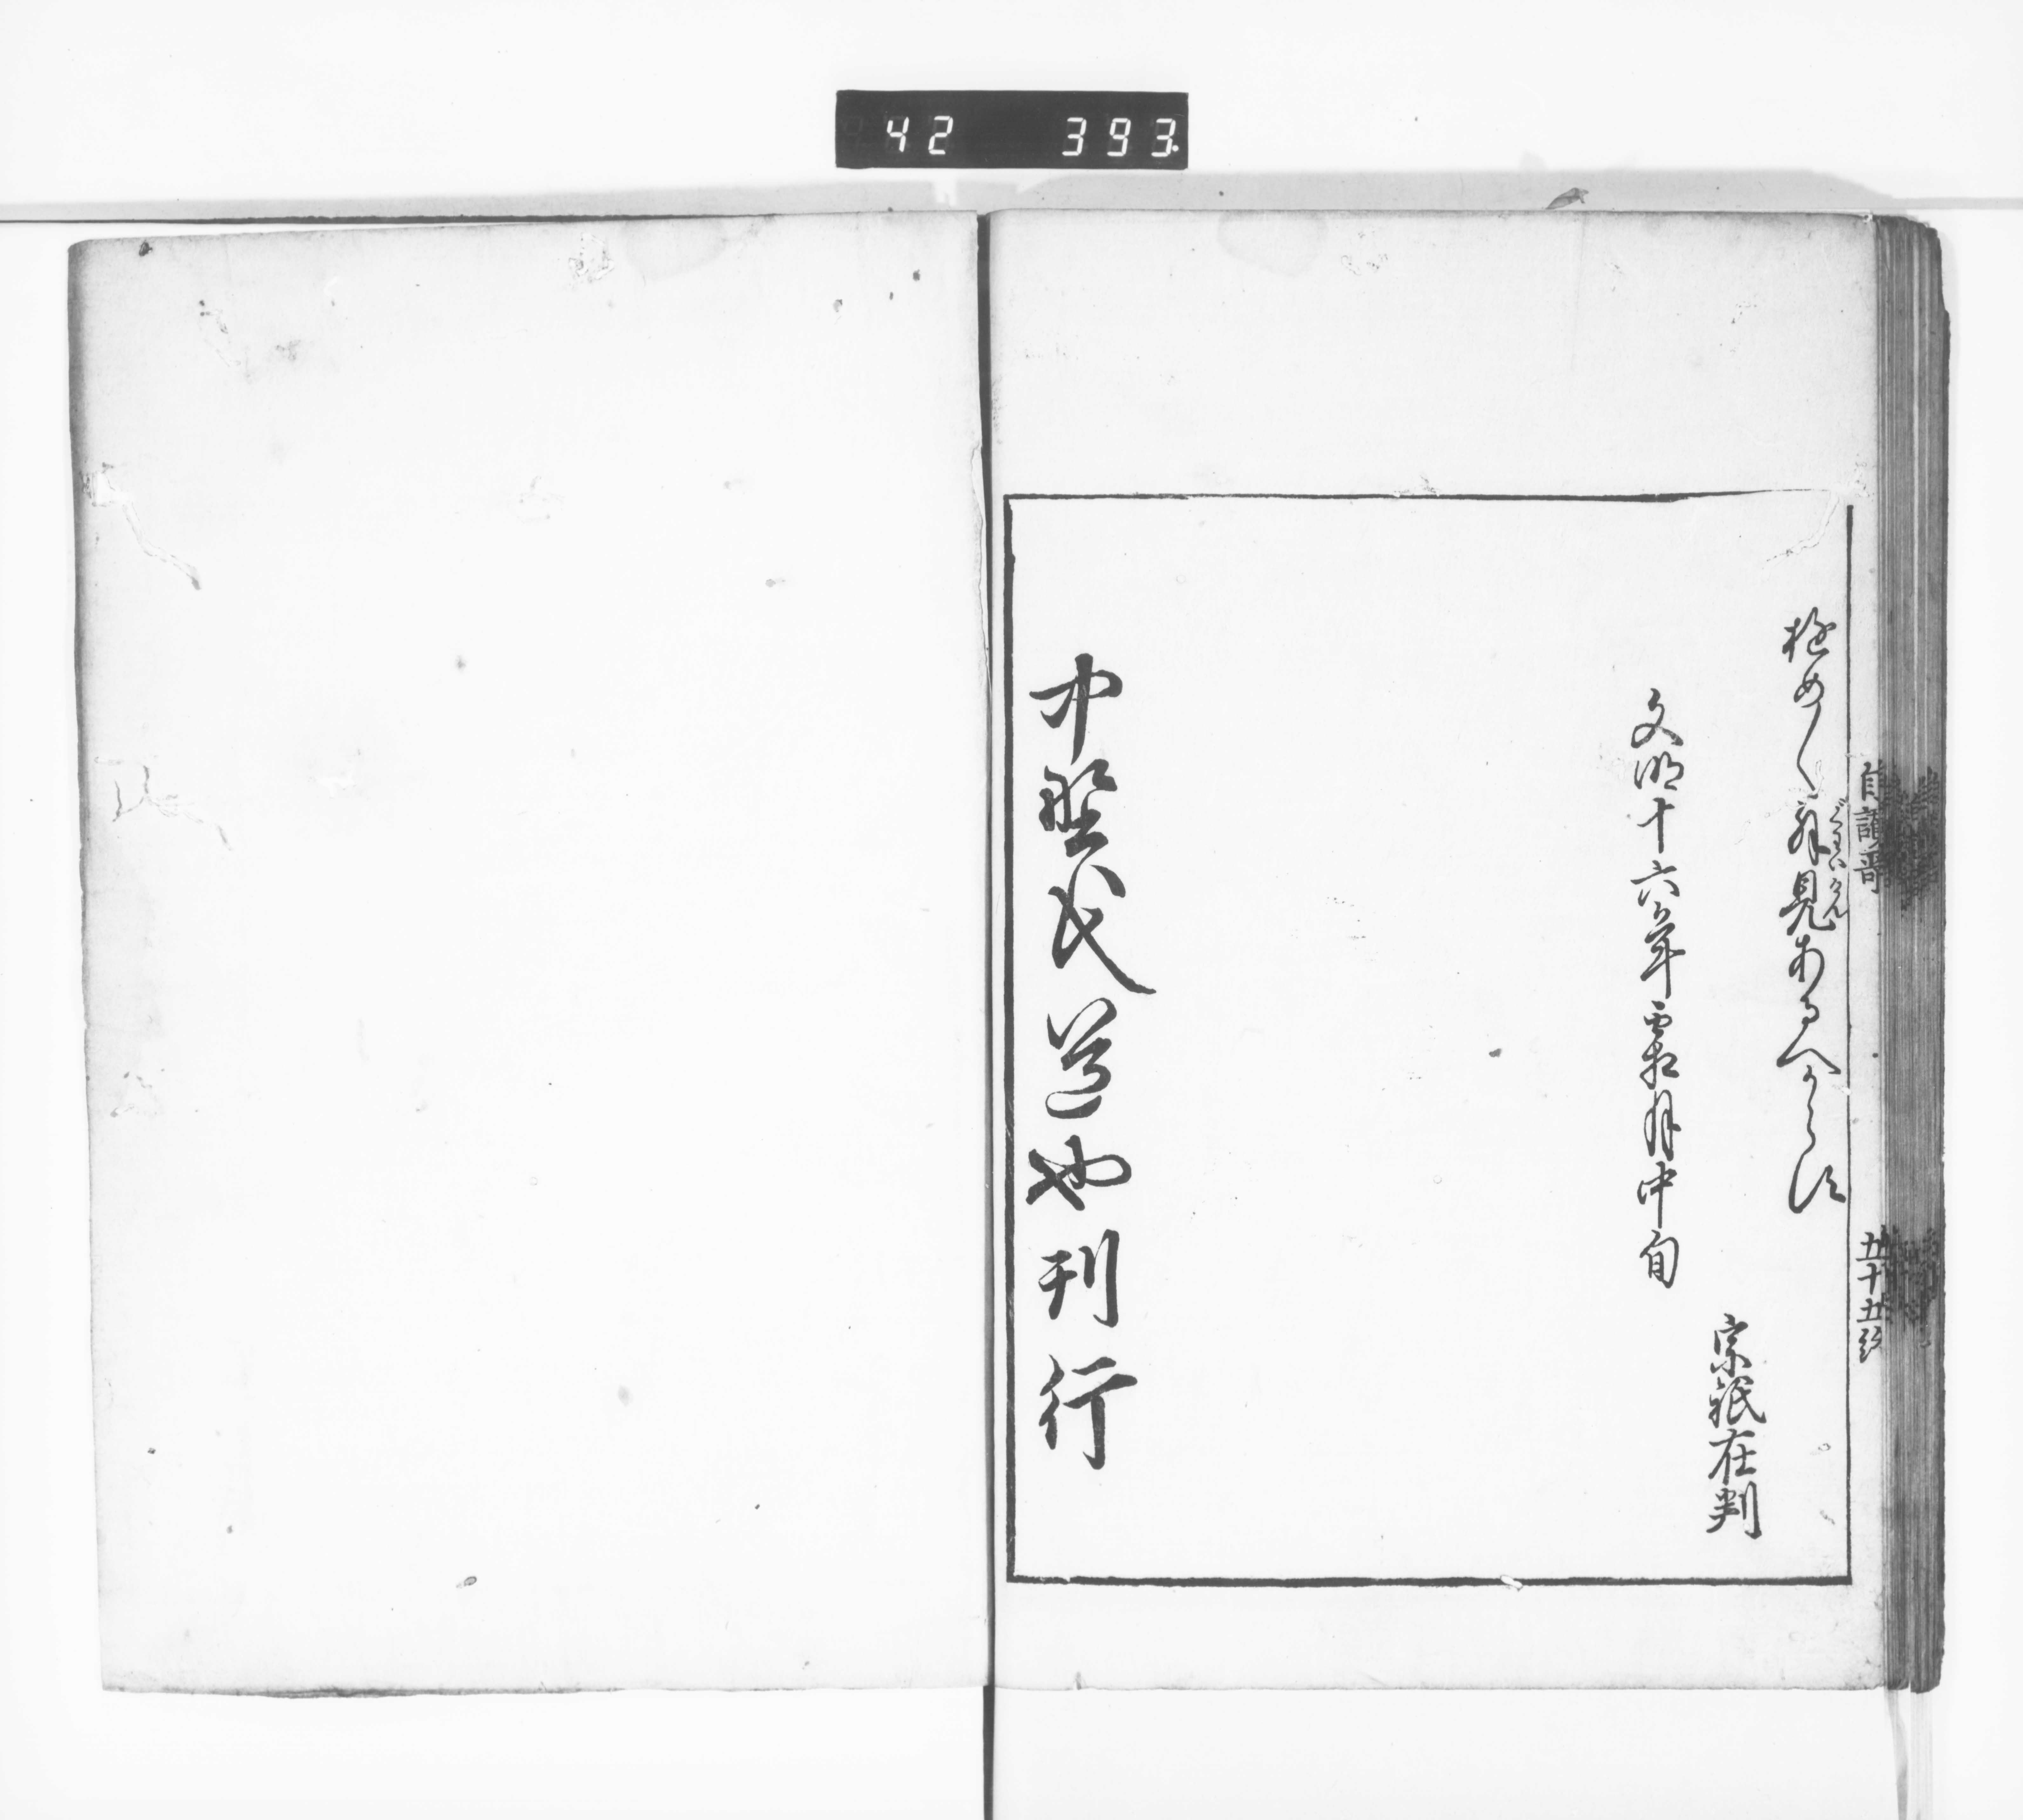 42 393
極めく外見あるへからす
ぐわいけん
宗祇在判
文明十六年霜月中旬
中野氏道也刊行
自讃哥
五十五終